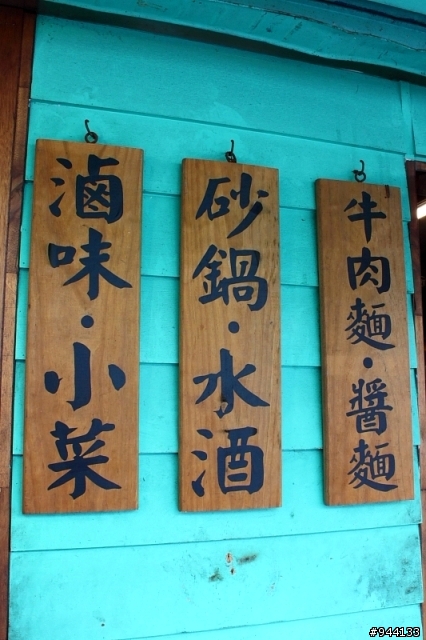 牛肉麵・醬麵
砂鍋・水酒
滷味・小菜
#944133